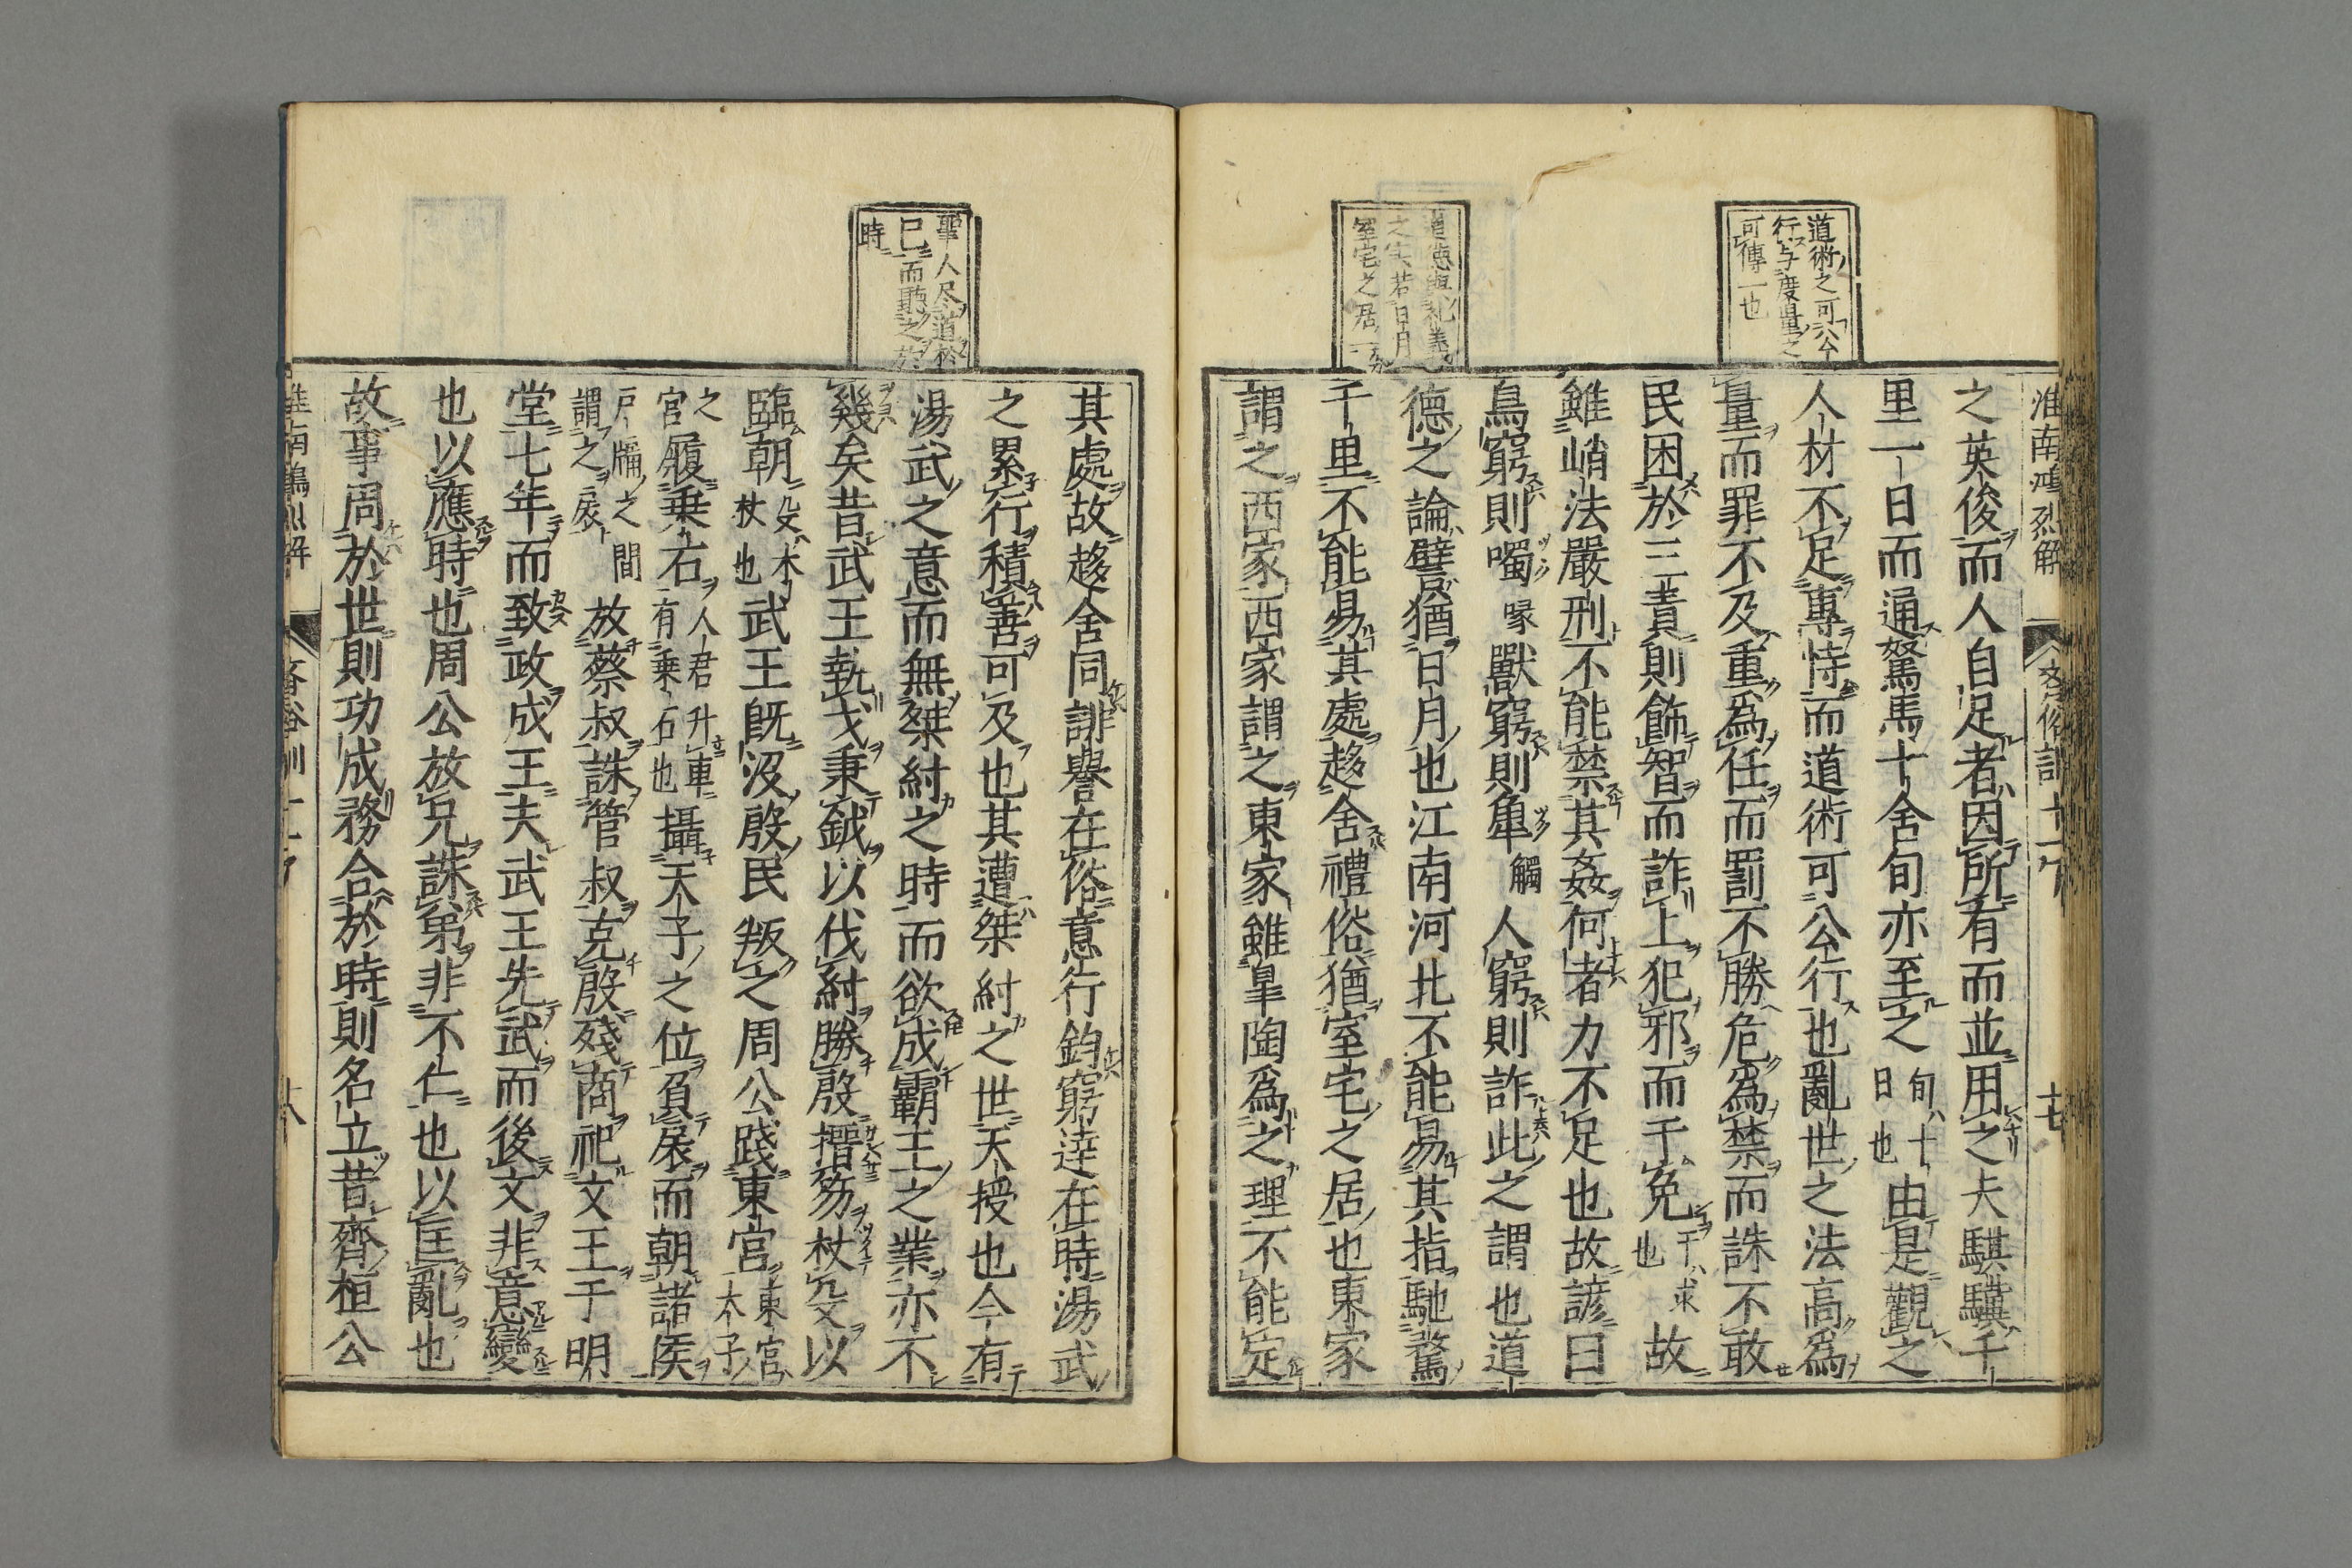 淮南鴻烈解
齊俗訓十一
十七
道術之可公
行与度量之
可傳一也
道德與礼義
之実若日月
室宅之居一
之英俊而人自足者因所有而並用之夫騏驥千
里一日而通駑馬十舍旬亦至之旬十日也由是觀之
人材不足專恃而道術可公行也亂世之法高爲
量而罪不及重爲任而罰不勝危爲禁而誅不敢
民困於三責則飾智而詐上犯邪而干免干求也故
雖峭法嚴刑不能禁其姦何者力不足也故諺曰
鳥窮則噣喙獸窮則𢍰觸人窮則詐此之謂也道
德之論譬猶日月也江南河北不能易其指馳騖
千里不能易其處趍舍禮俗猶室宅之居也東家
謂之西家西家謂之東家雖皐陶爲之理不能定
聖人尽道於
己而聽之於
時
其處故趍舍同誹譽在俗意行鈞窮達在時湯武
之累行積善可及也其遭桀紂之世天授也今有
湯武之意而無桀紂之時而欲成霸王之業亦不
幾矣昔武王執戈秉鉞以伐紂勝殷搢笏杖殳以
臨朝殳木杖也武王旣沒殷民叛之周公踐東宮東宮太子
之宮履乗石人君升車有乗石也攝天子之位負扆而朝諸侯
戶牖之間謂之扆放蔡叔誅管叔克殷殘商祀文王于明
堂七年而致政成王夫武王先武而後文非意變
也以應時也周公放兄誅弟非不仁也以匡亂也
故事周於世則功成務合於時則名立昔齊桓公